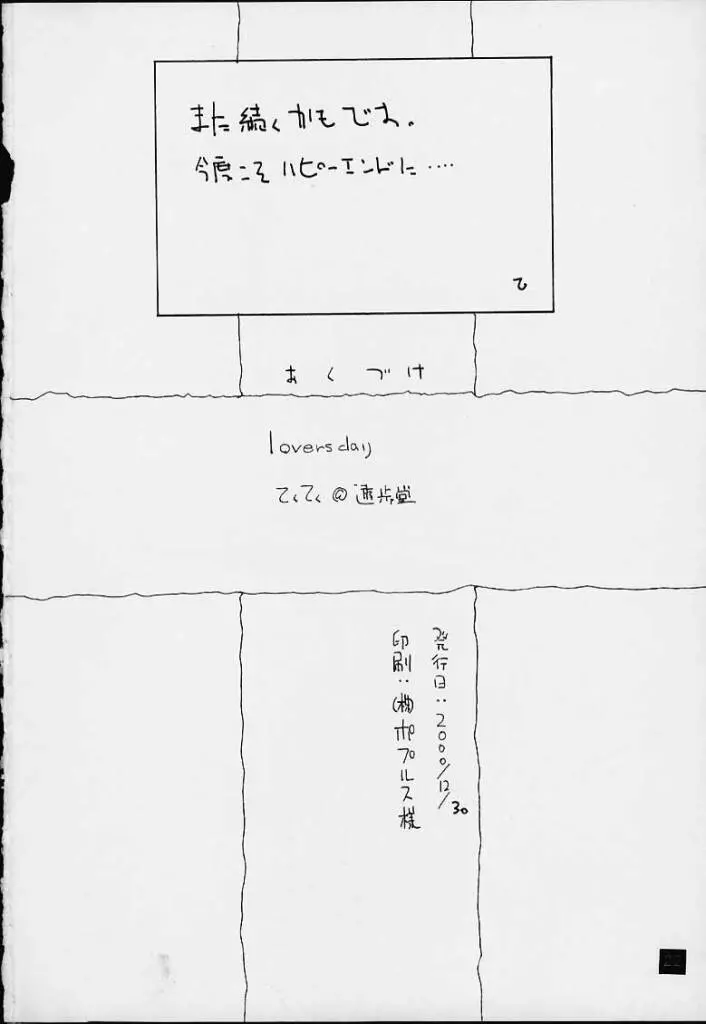 また続くかもです。
今度こそハピーエンドに‥‥
て
おくづけ
lovers day
てくてく@速歩堂
発行日:2000/12/30
印刷:(株)ポプルス様
22